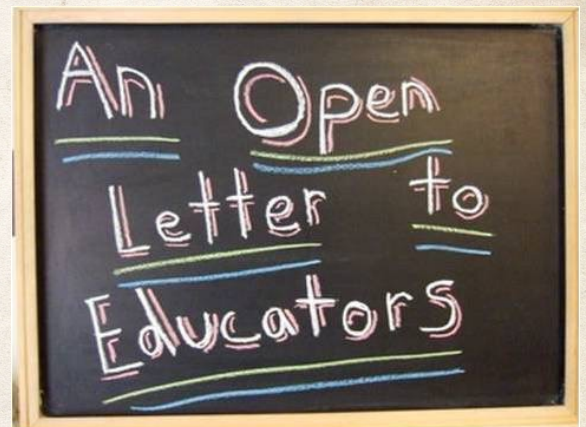 An Open
Letter to
Educators